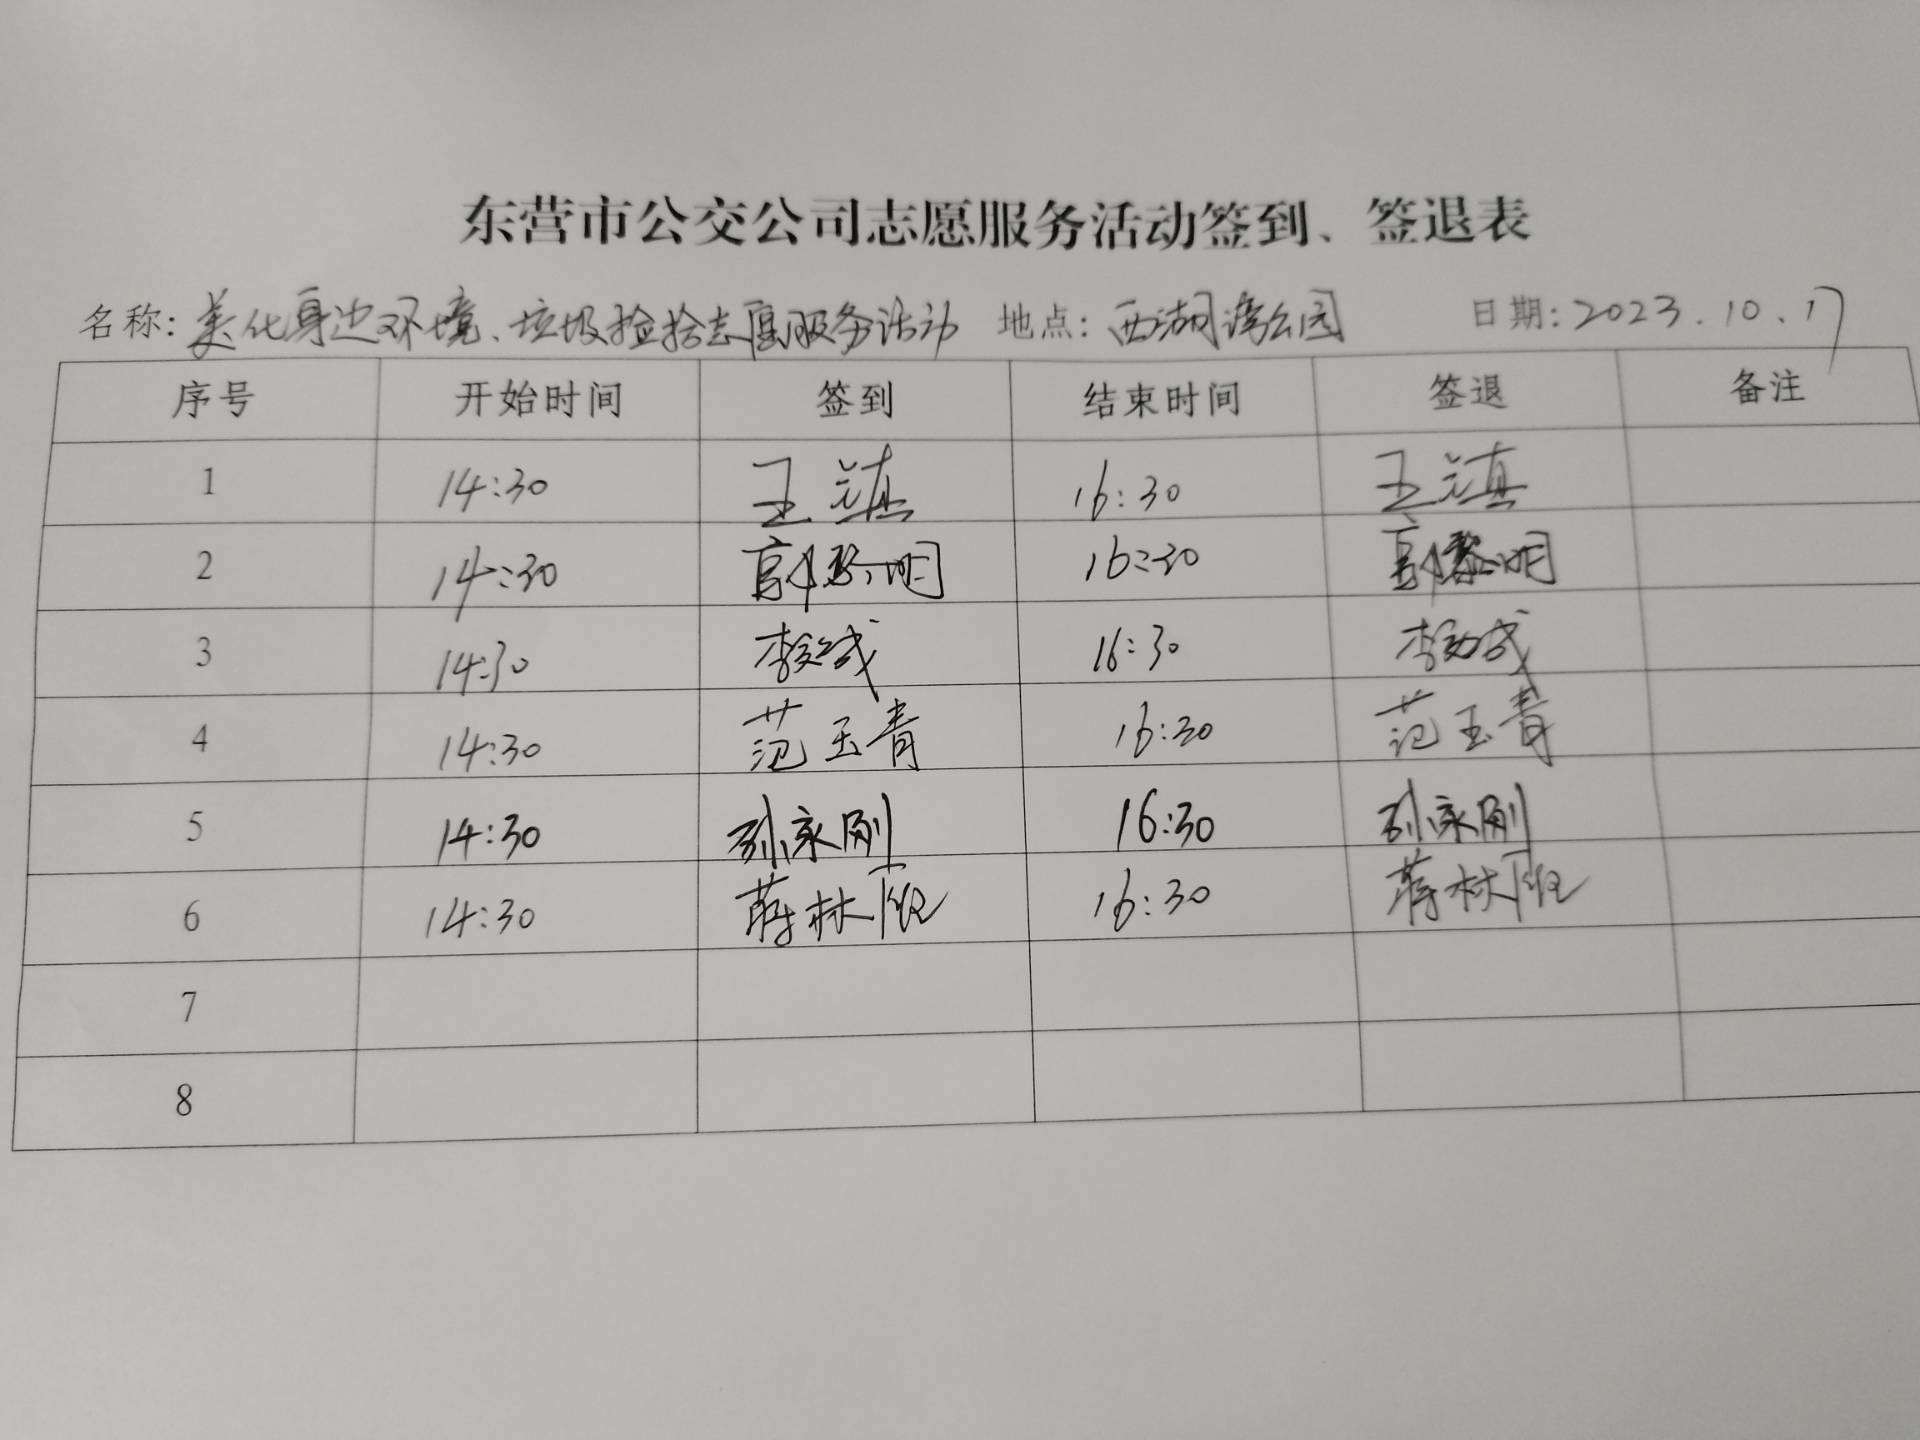 东营市公交公司志愿服务活动签到、签退表
名称: 美化身边环境、垃圾捡拾志愿服务活动 地点: 西湖公园 日期: 2023.10.17
序号 开始时间 签到 结束时间 签退 备注
1 14:30 王镇 16:30 王镇
2 14:30 郭黎明 16:30 郭黎明
3 14:30 李 成 16:30 李 成
4 14:30 范玉青 16:30 范玉青
5 14:30 孙家刚 16:30 孙家刚
6 14:30 蒋林 16:30 蒋林
7
8